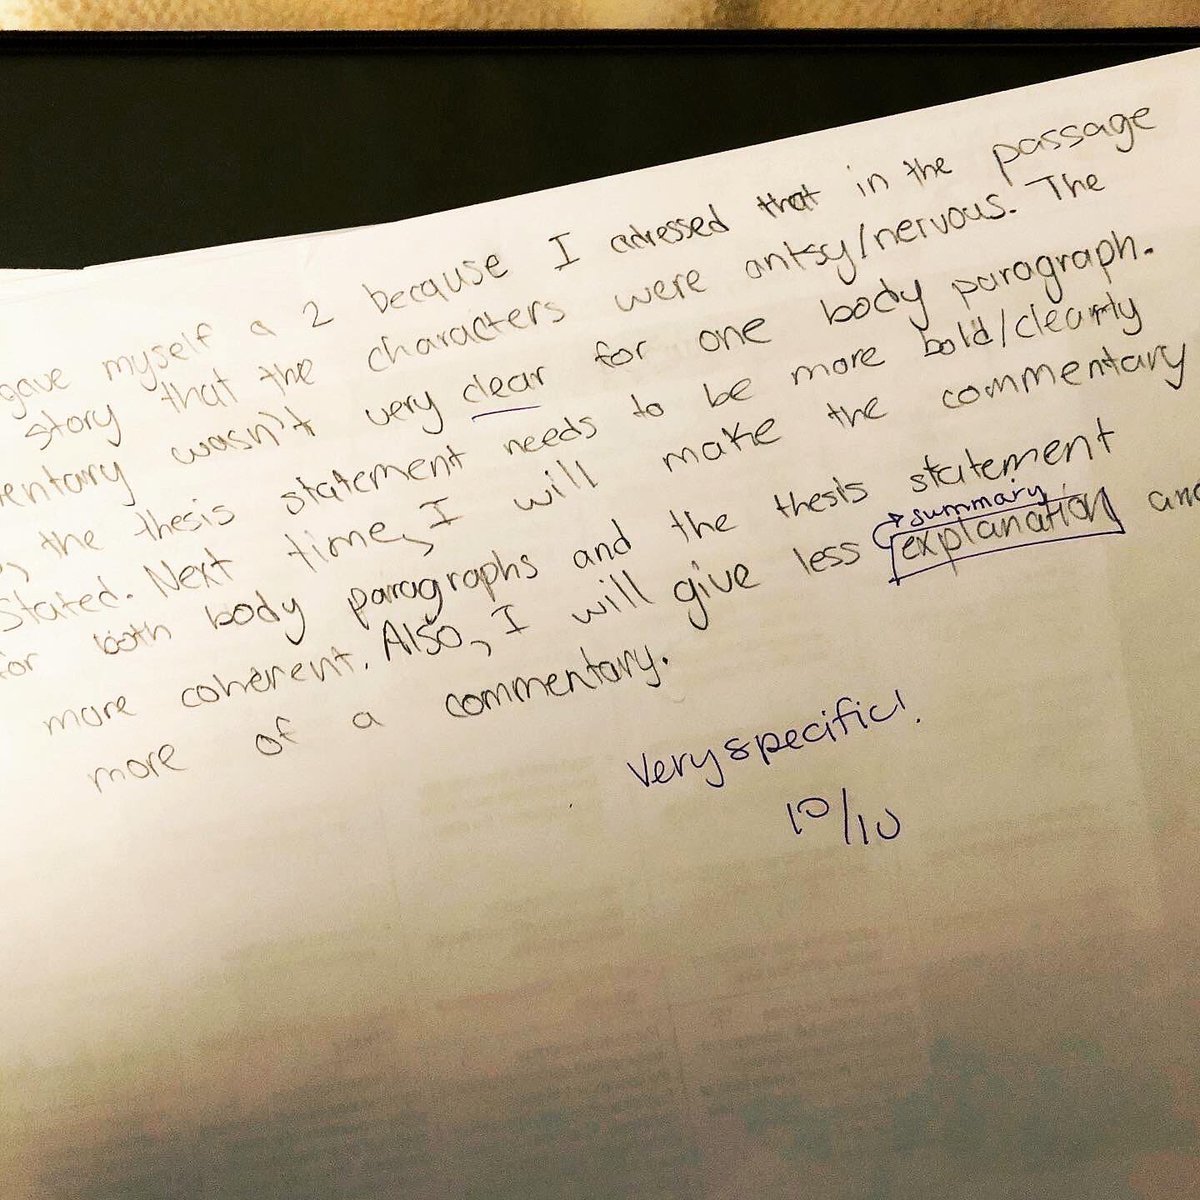 gave myself a 2 because I adressed that in the passage
story that the characters were antsy/nervous. The
entary wasn't very clear for one body paragraph.
, the thesis statement needs to be more bold/clearly
Stated. Next time, I will make the commentary
for both body paragraphs and the thesis statement
summary
more coherent. Also, I will give less explanation and
more of a commentary.
Very specific!
10/10